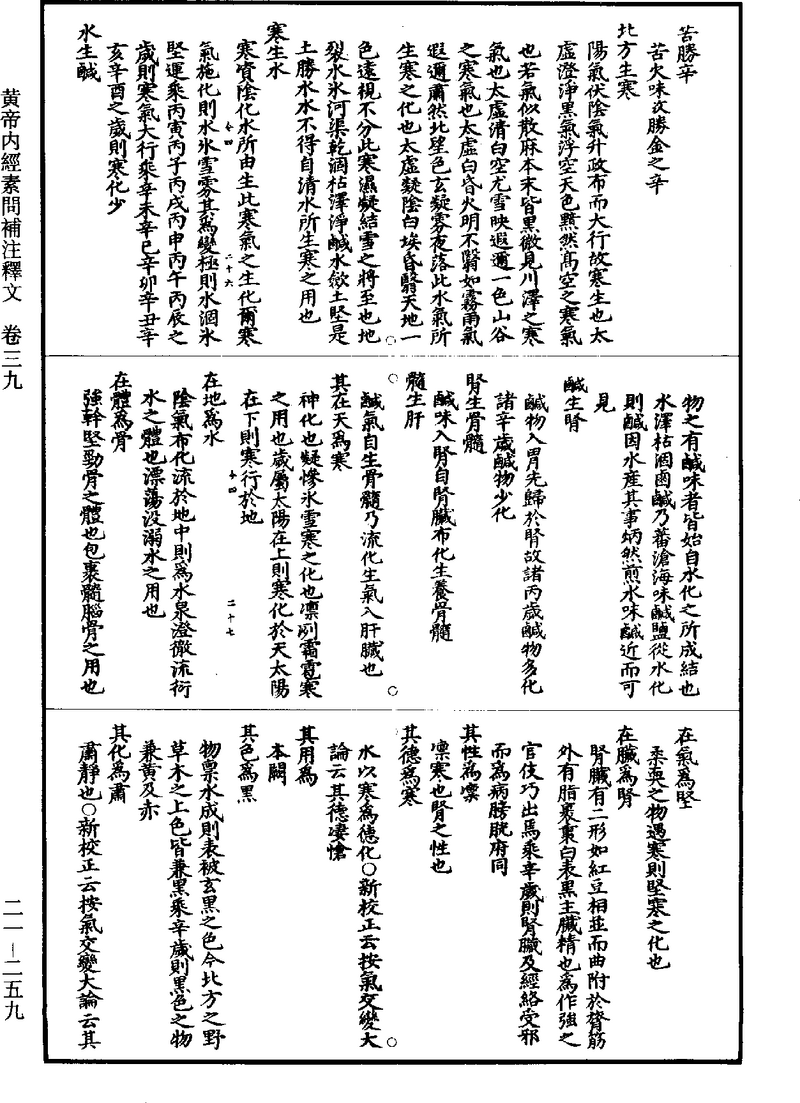 苦勝辛
苦火味故勝金之辛
北方生寒
陽氣伏陰氣升政布而大行故寒生也太
虛澄淨黑氣浮空天色黯然高空之寒氣
也若氣似散麻本末皆黑微見川澤之寒
氣也太虛清白空尤雪映遐邇一色山谷
之寒氣也太虛白昏火明不翳如霧雨氣
遐邇肅然北望色玄凝雰夜落此水氣所
生寒之化也太虛凝陰白埃昏翳天地一
色遠視不分此寒濕凝結雪之將至也地
裂水氷河渠乾涸枯澤淨鹹水斂土堅是
土勝水水不得自清水所生寒之用也
寒生水
寒資陰化水所由生此寒氣之生化爾寒
氣施化則水氷雪雰其爲變極則水涸氷
堅運乘丙寅丙子丙戌丙申丙午丙辰之
歲則寒氣大行乘辛未辛巳辛卯辛丑辛
亥辛酉之歲則寒化少
水生鹹
物之有鹹味者皆始自水化之所成結也
水澤枯涸鹵鹹乃蕃滄海味鹹鹽從水化
則鹹因水産其事炳然煎水味鹹近而可
見
鹹生腎
鹹物入胃先歸於腎故諸丙歲鹹物多化
諸辛歲鹹物少化
腎生骨髓
鹹味入腎自腎臟布化生養骨髓
髓生肝
鹹氣自生骨髓乃流化生氣入肝臟也
其在天爲寒
神化也凝慘氷雪寒之化也凛冽霜雹寒
之用也歲屬太陽在上則寒化於天太陽
在下則寒行於地
在地爲水
陰氣布化流於地中則爲水泉澄徹流衍
水之體也漂蕩没溺水之用也
在體爲骨
強幹堅勁骨之體也包裹髓腦骨之用也
在氣爲堅
柔耎之物遇寒則堅寒之化也
在臟爲腎
腎臟有二形如紅豆相並而曲附於膂筋
外有脂裹裏白表黑主臟精也爲作強之
官伎巧出焉乘辛歲則腎臟及經絡受邪
而爲病膀胱府同
其性爲凛
凛寒也腎之性也
其德爲寒
水以寒爲德化○新校正云按氣交變大
論云其德凄愴
其用爲
本闕
其色爲黑
物禀水成則表被玄黑之色今北方之野
草木之上色皆兼黑乘辛歲則黑色之物
兼黄及赤
其化爲肅
肅靜也○新校正云按氣交變大論云其
黄帝内經素問補注釋文　卷三九
二一－二五九